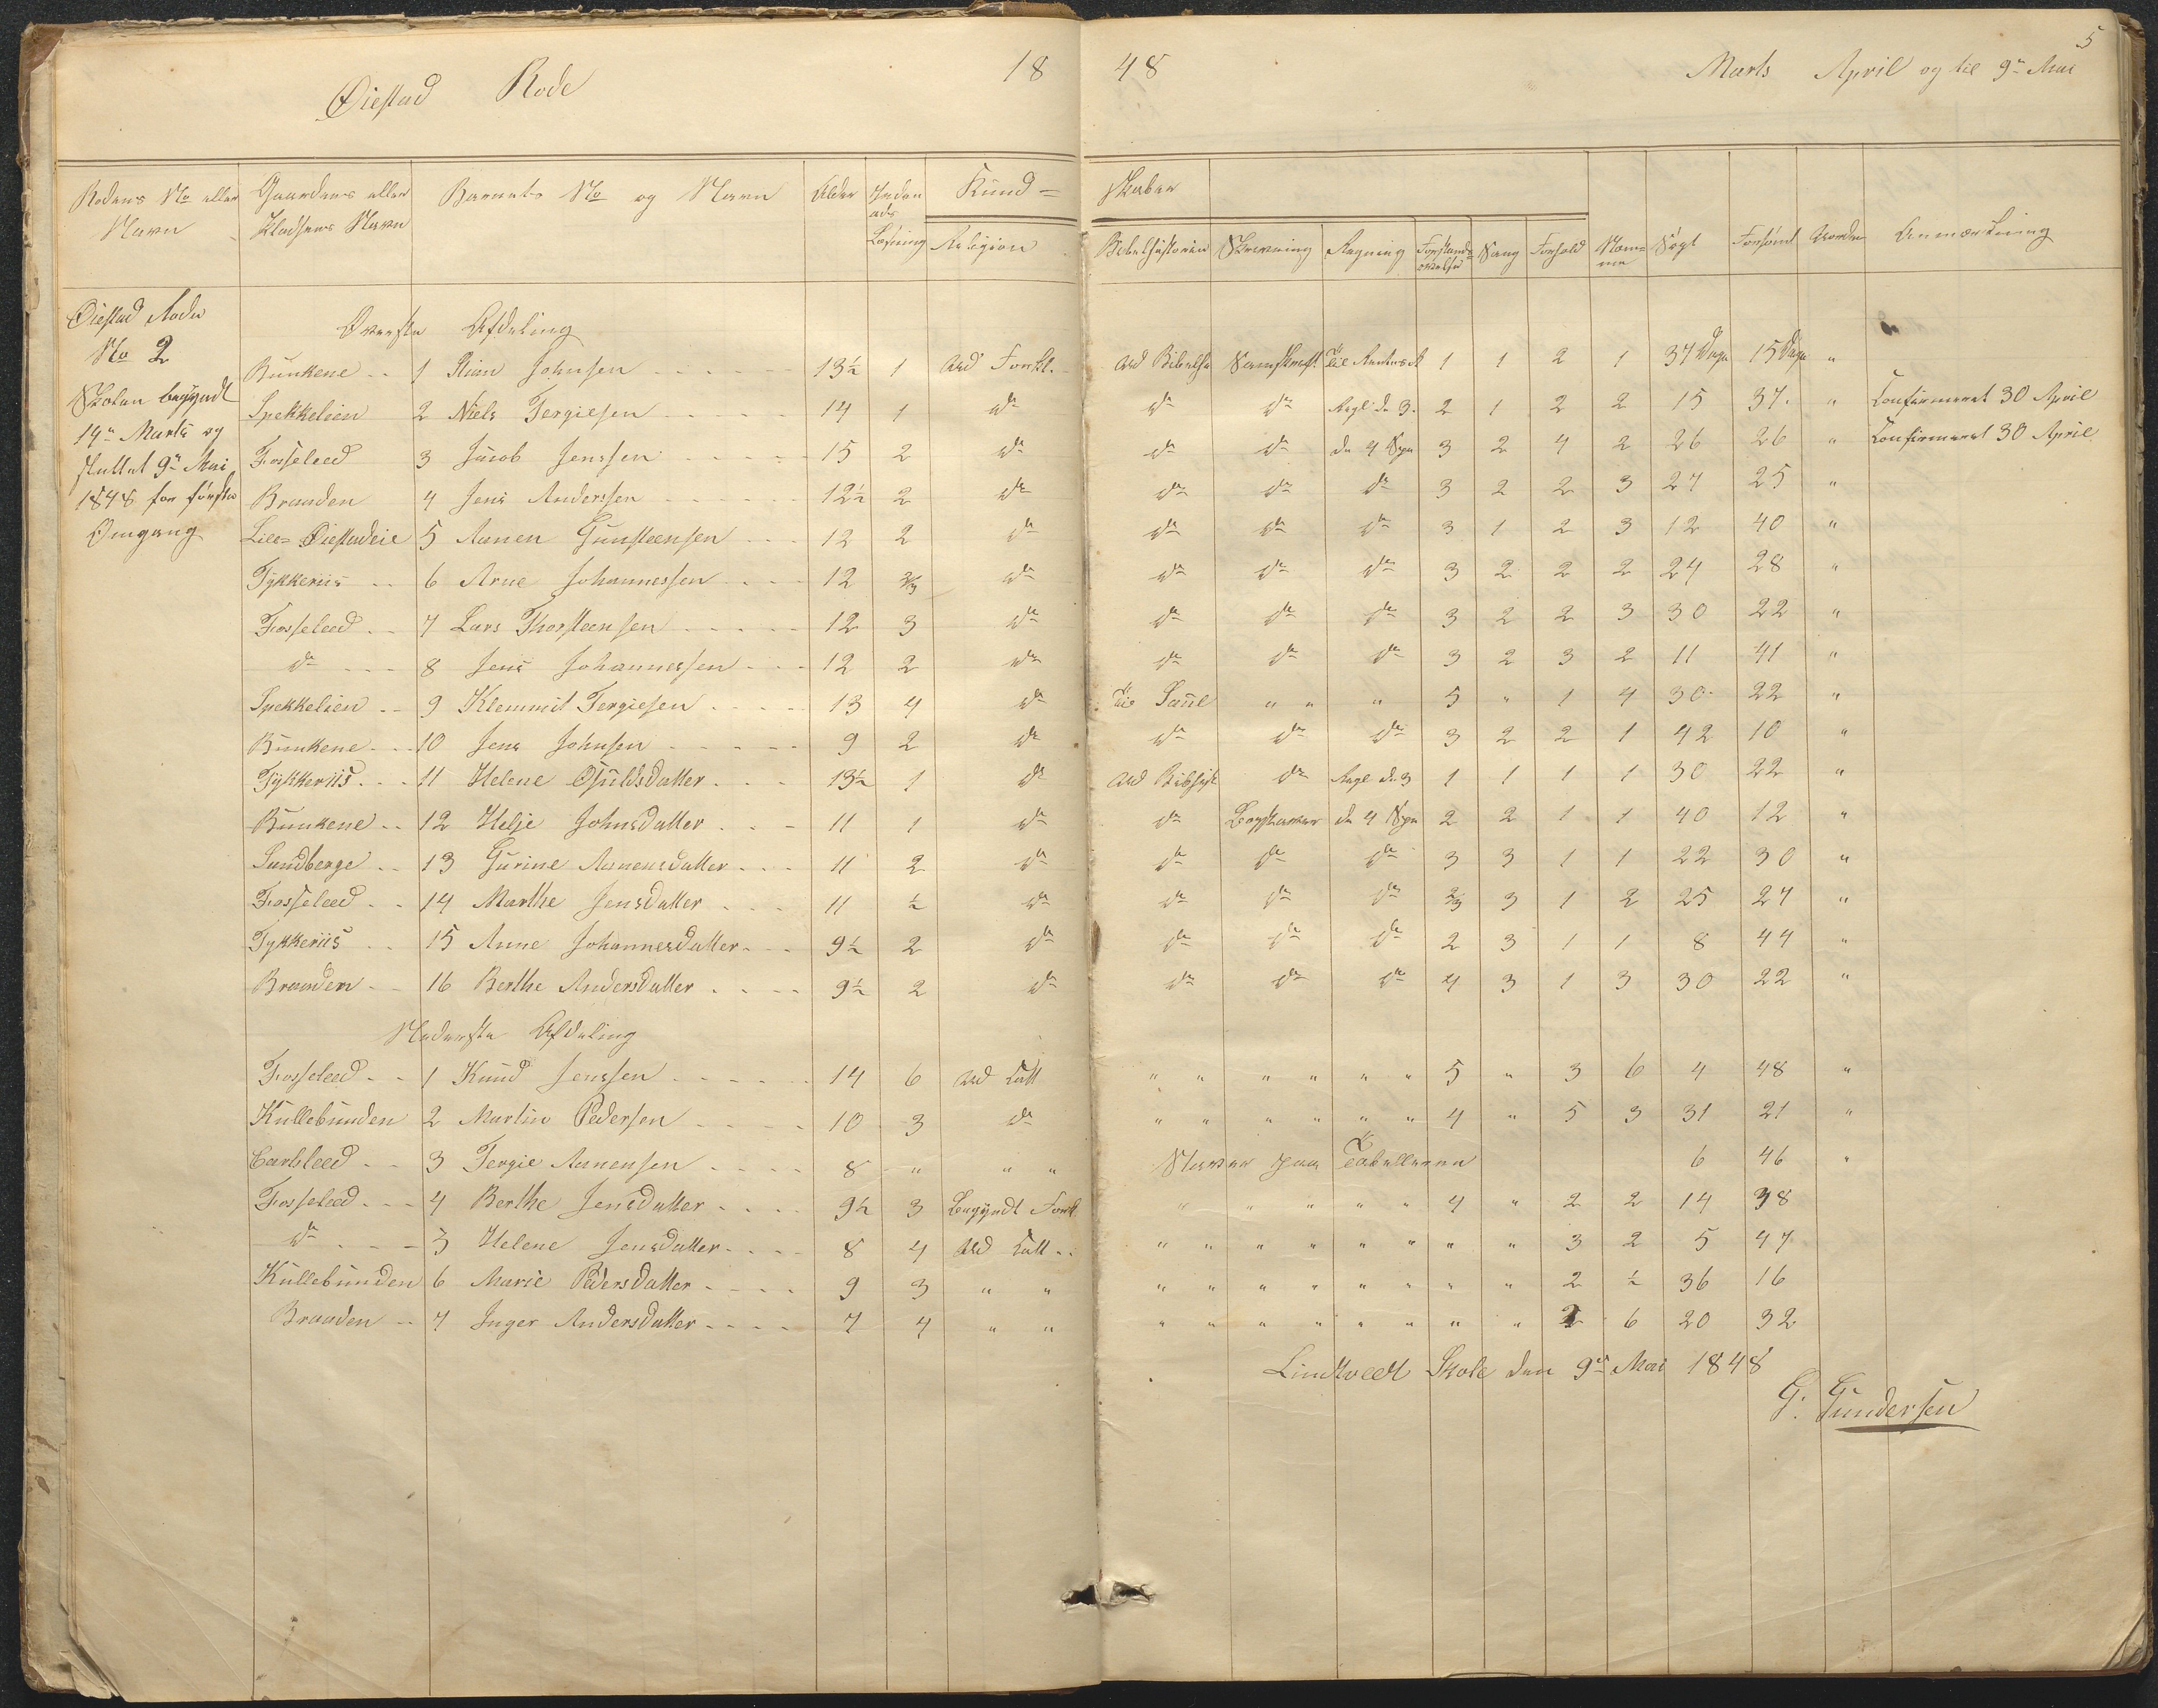 Øiestad Rode 1848 Marts April og til 9de Mai
5
Rodens No eller Navn | Gaardens eller Pladsens Navn | Barnets No og Navn | Alder | Inden ads Læsning | Kund=skaber
Religion | Bibelhistorien | Skrivning | Regning | Forstands øvelse | Sang | Forhold | Nem= me | Søgt | Forsømt | Anmærkning
Øiestad Rode
No 2
Skolen begyndt
14de Marts og
sluttet 9de Mai
1848 for første
Omgang
Øverste Afdeling
Bunkene 1 Johnsen 13½ 1 Ud Forkl. Ud Bibelhi 1 1 2 1 37 Dage 15 Dage "
Spekkelien 2 Niels Tergiesen 14 1 do do do Regl. de 3. 2 1 2 2 15 37. " Confirmeret 30 April
Fosseleed 3 Jacob Jenssen 15 2 do do do de 4 Spe 3 2 4 2 26 26 " Confirmeret 30 April
Braaden 4 Jens Anderssen 12½ 2 do do do do 3 2 2 3 27 25 "
Lille Øiestadeie 5 Aanen Gunsteensen 12 2 do do do do 3 1 2 3 12 40 "
Tykkeriis 6 Arne Johannessen 12 2/3 do do do do 3 2 2 2 24 28 "
Fosseleed 7 Lars Thorsteensen 12 3 do do do do 3 2 2 3 30 22 "
do 8 Jens Johannessen 12 2 do do do do 3 2 3 2 11 41 "
Spekkelien 9 Klemmit Tergiesen 13 4 do til Saul " " " 5 " 1 4 30 22 "
Bunkene 10 Jens Johnsen 9 2 do do do do 3 2 2 1 42 10 "
Tykkeriis 11 Helene Osuldsdatter 13½ 1 do Ud Bibhist do Regl de 3 1 1 1 1 30 22 "
Bunkene 12 Helje Johnsdatter 11 1 do do Bogstaver de 4 Spe 2 2 1 1 40 12 "
Sundberge 13 Gurine Aanensdatter 11 2 do do do do 3 3 1 1 22 30 "
Fosseleed 14 Marthe Jensdatter 11 ½ do do do do 2/3 3 1 2 25 27 "
Tykkeriis 15 Anne Johannesdatter 9½ 2 do do do do 2 3 1 1 8 44 "
Braaden 16 Berthe Andersdatter 9½ 2 do do do do 4 3 1 3 30 22 "
Nederste Afdeling
Fosseleed 1 Knud Jenssen 14 6 Ud Catt " " " " " " 5 " 3 6 4 48 "
Kullebunden 2 Martin Pedersen 10 3 do " " " " " " 4 " 5 3 31 21 "
Carlsleed 3 Tergie Aanensen 8 " " " Staver paa Tabellerne 6 46 "
Fosseleed 4 Berthe Jensdatter 9½ 3 Begyndt Fork " " " " " 4 " 2 2 14 38
do 5 Helene Jensdatter 8 4 Ud Catt " " " " " " " " 3 2 5 47
Kullebunden 6 Marie Pedersdatter 9 3 " " " " " " " " " " 2 ½ 36 16
Braaden 7 Inger Andersdatter 7 4 " " " " " " " " " " 2 6 20 32
Lindtvedt Skole den 9de Mai 1848
G. Gundersen